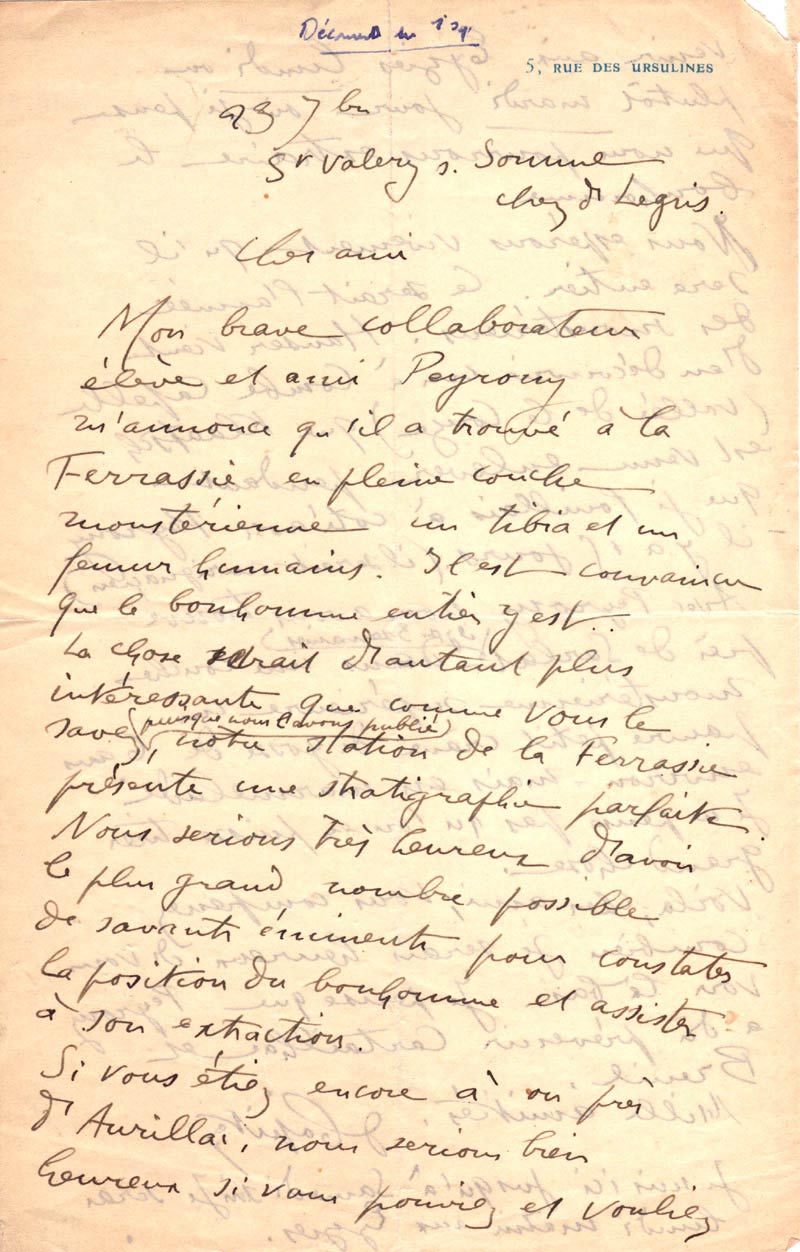 Découvert en
5, RUE DES URSULINES
23 7bre
St Valery s. Somme
chez Dr Legris.
Cher ami
Mon brave collaborateur
élève et ami Peyrony
m'annonce qu'il a trouvé à la
Ferrassie en pleine couche
moustérienne un tibia et un
femur humains. Il est convaincu
que le bonhomme entier y est..
La chose serait d'autant plus
intéressante que comme vous le
savez (puisque nous l'avons publié), notre station de la Ferrassie
présente une stratigraphie parfaite.
Nous serions très heureux d'avoir
le plus grand nombre possible
de savants éminents pour constater
la position du bonhomme et assister
à son extraction.
Si vous étiez encore à ou près
d'Aurillac, nous serions bien
heureux si vous pouviez et vouliez